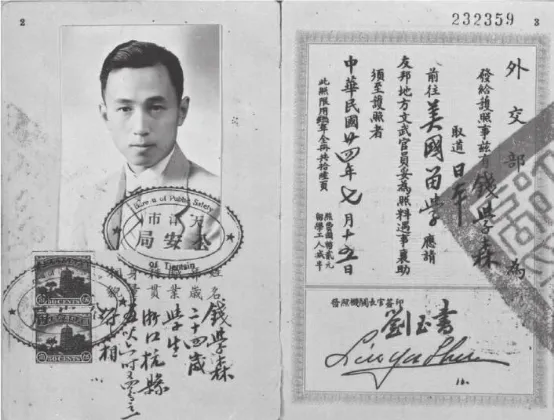 2
Bureau of Public Safety
天津市
公安局
Of Tientsin
姓名 錢學森
年歲 二十四歲
職業 學生
籍貫 浙江杭縣
相貌 如相
232359
3
外交部 為
發給護照事茲有錢學森
取道日本
前往美國留學應請
友邦地方文武官員妥為照料遇事襄助
須至護照者
中華民國廿四年七月十五日
此照限用
照費國幣貳元
留學工人減半
簽照機關長官簽印
劉玉書
Liu Yu Shu